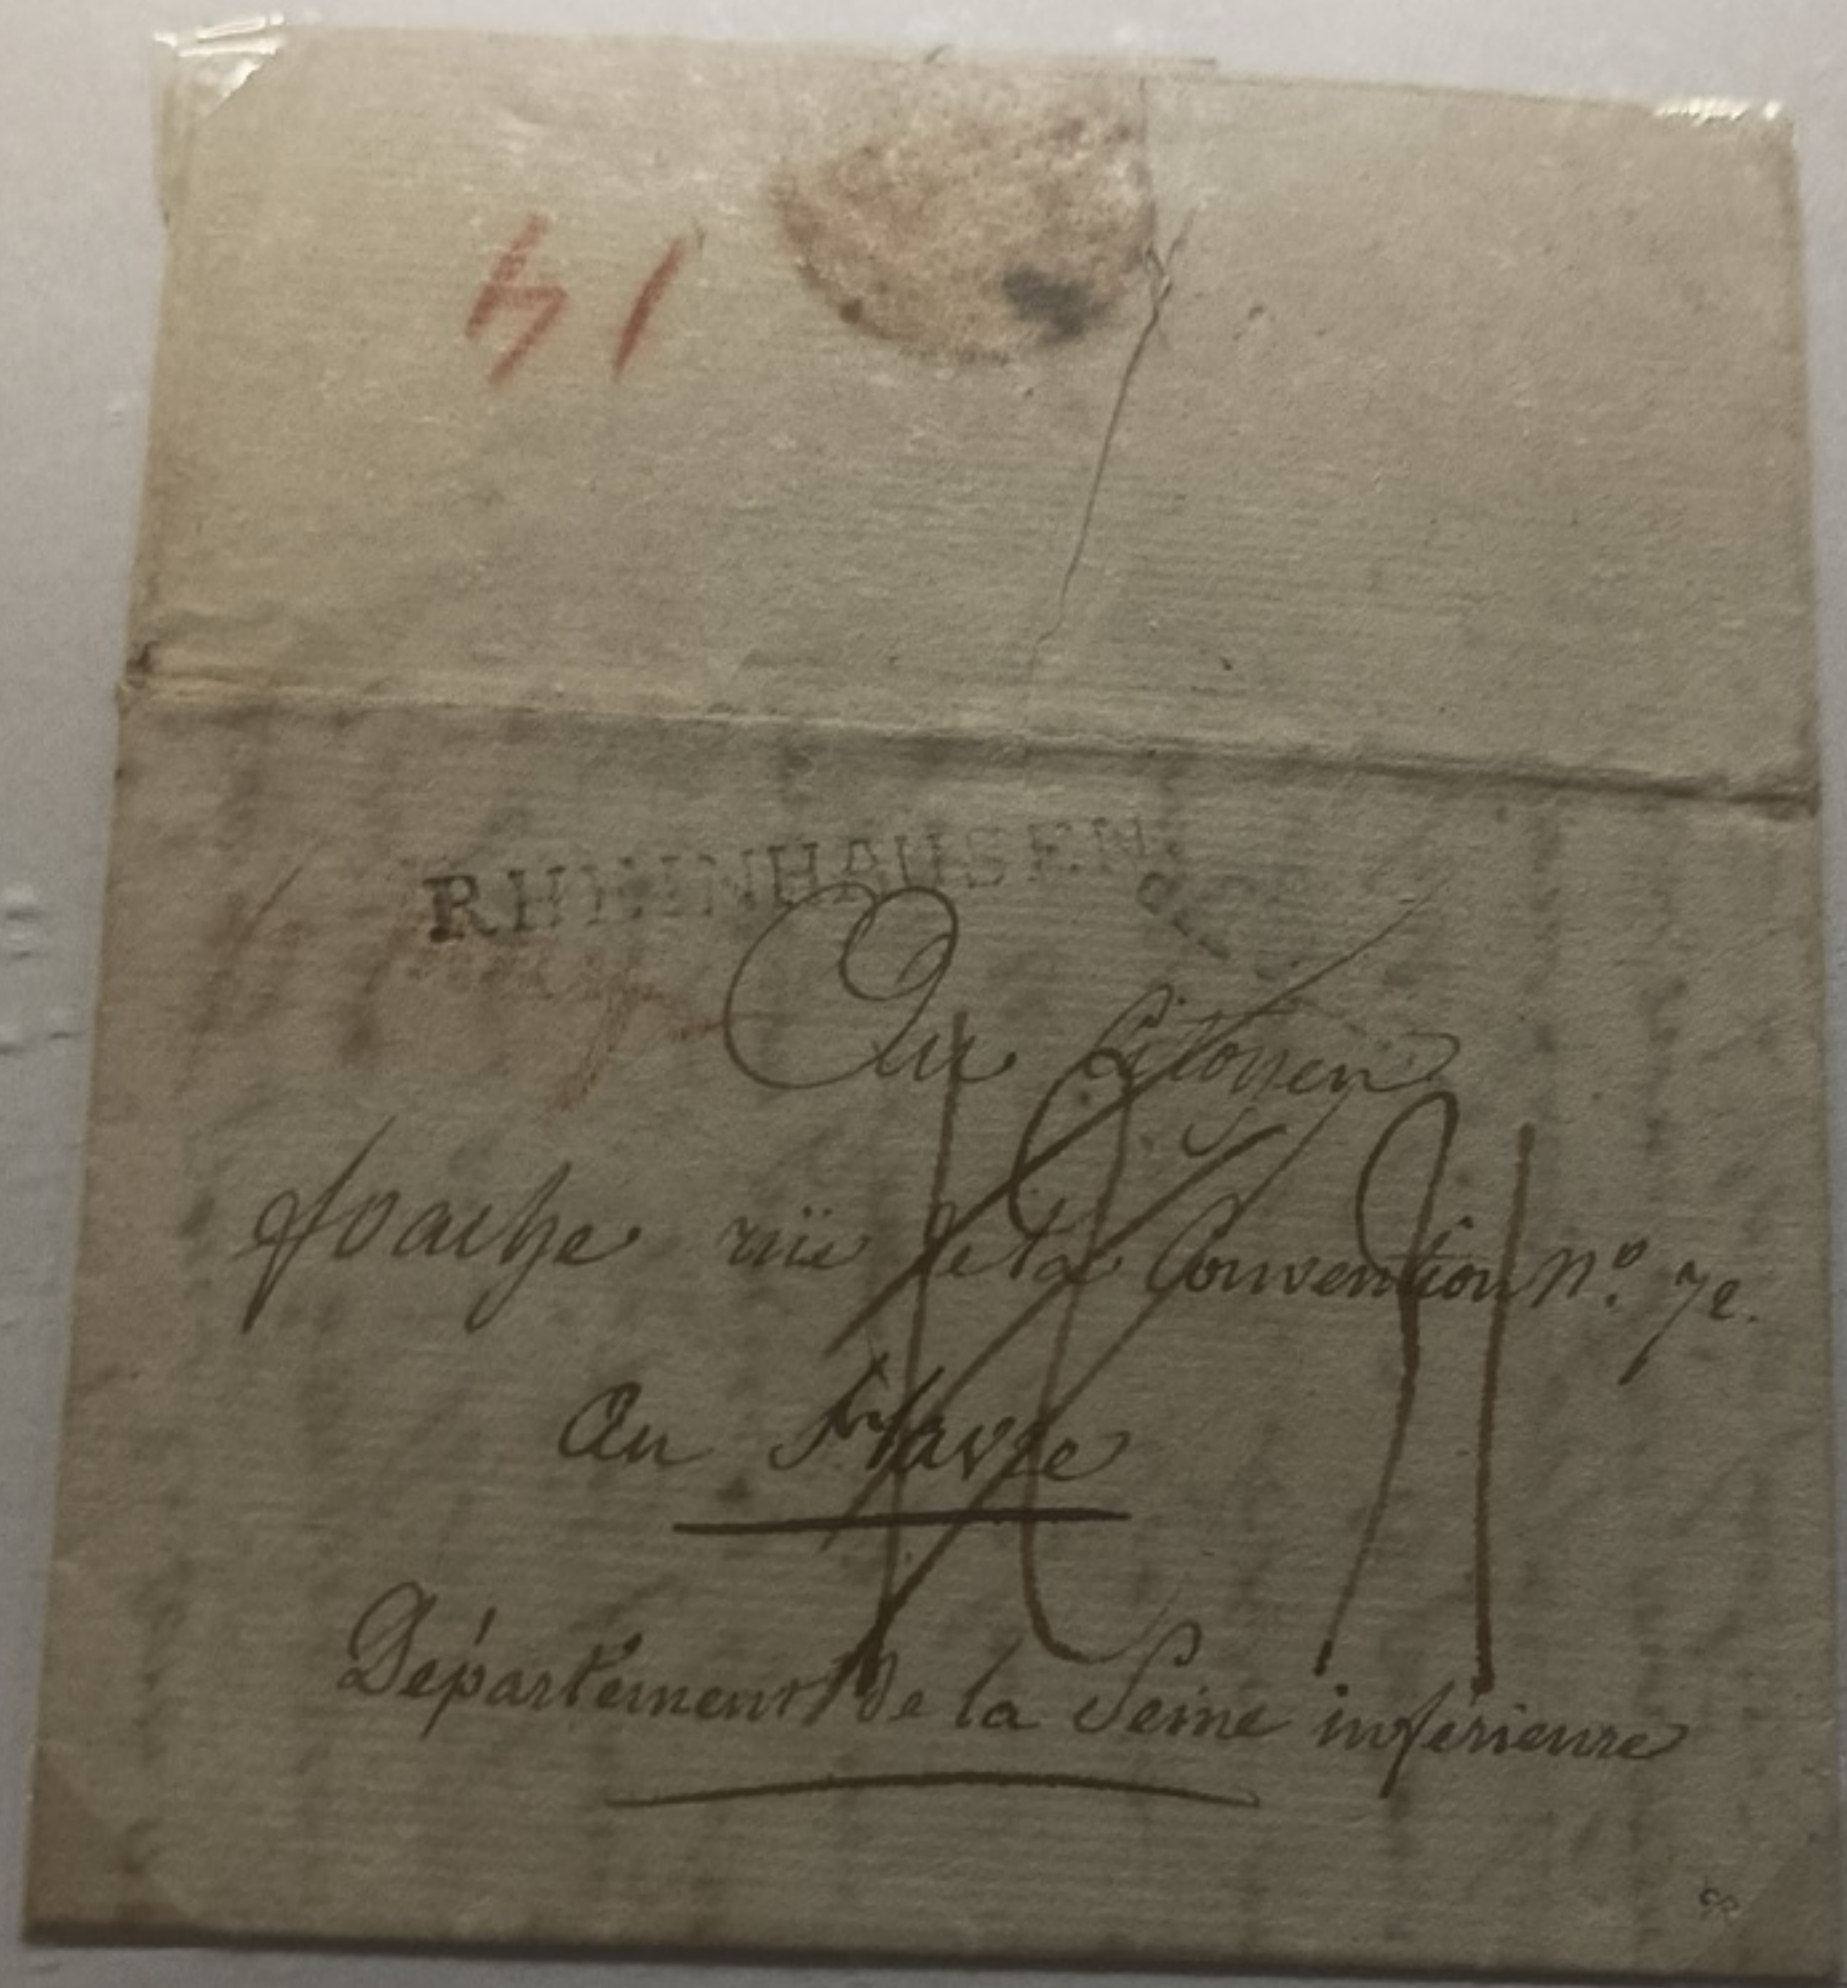 14
RHEINHAUSEN
Au Citoyen
foache rüe de la Convention N.º 7e.
Au Havre
Département de la Seine inférieure